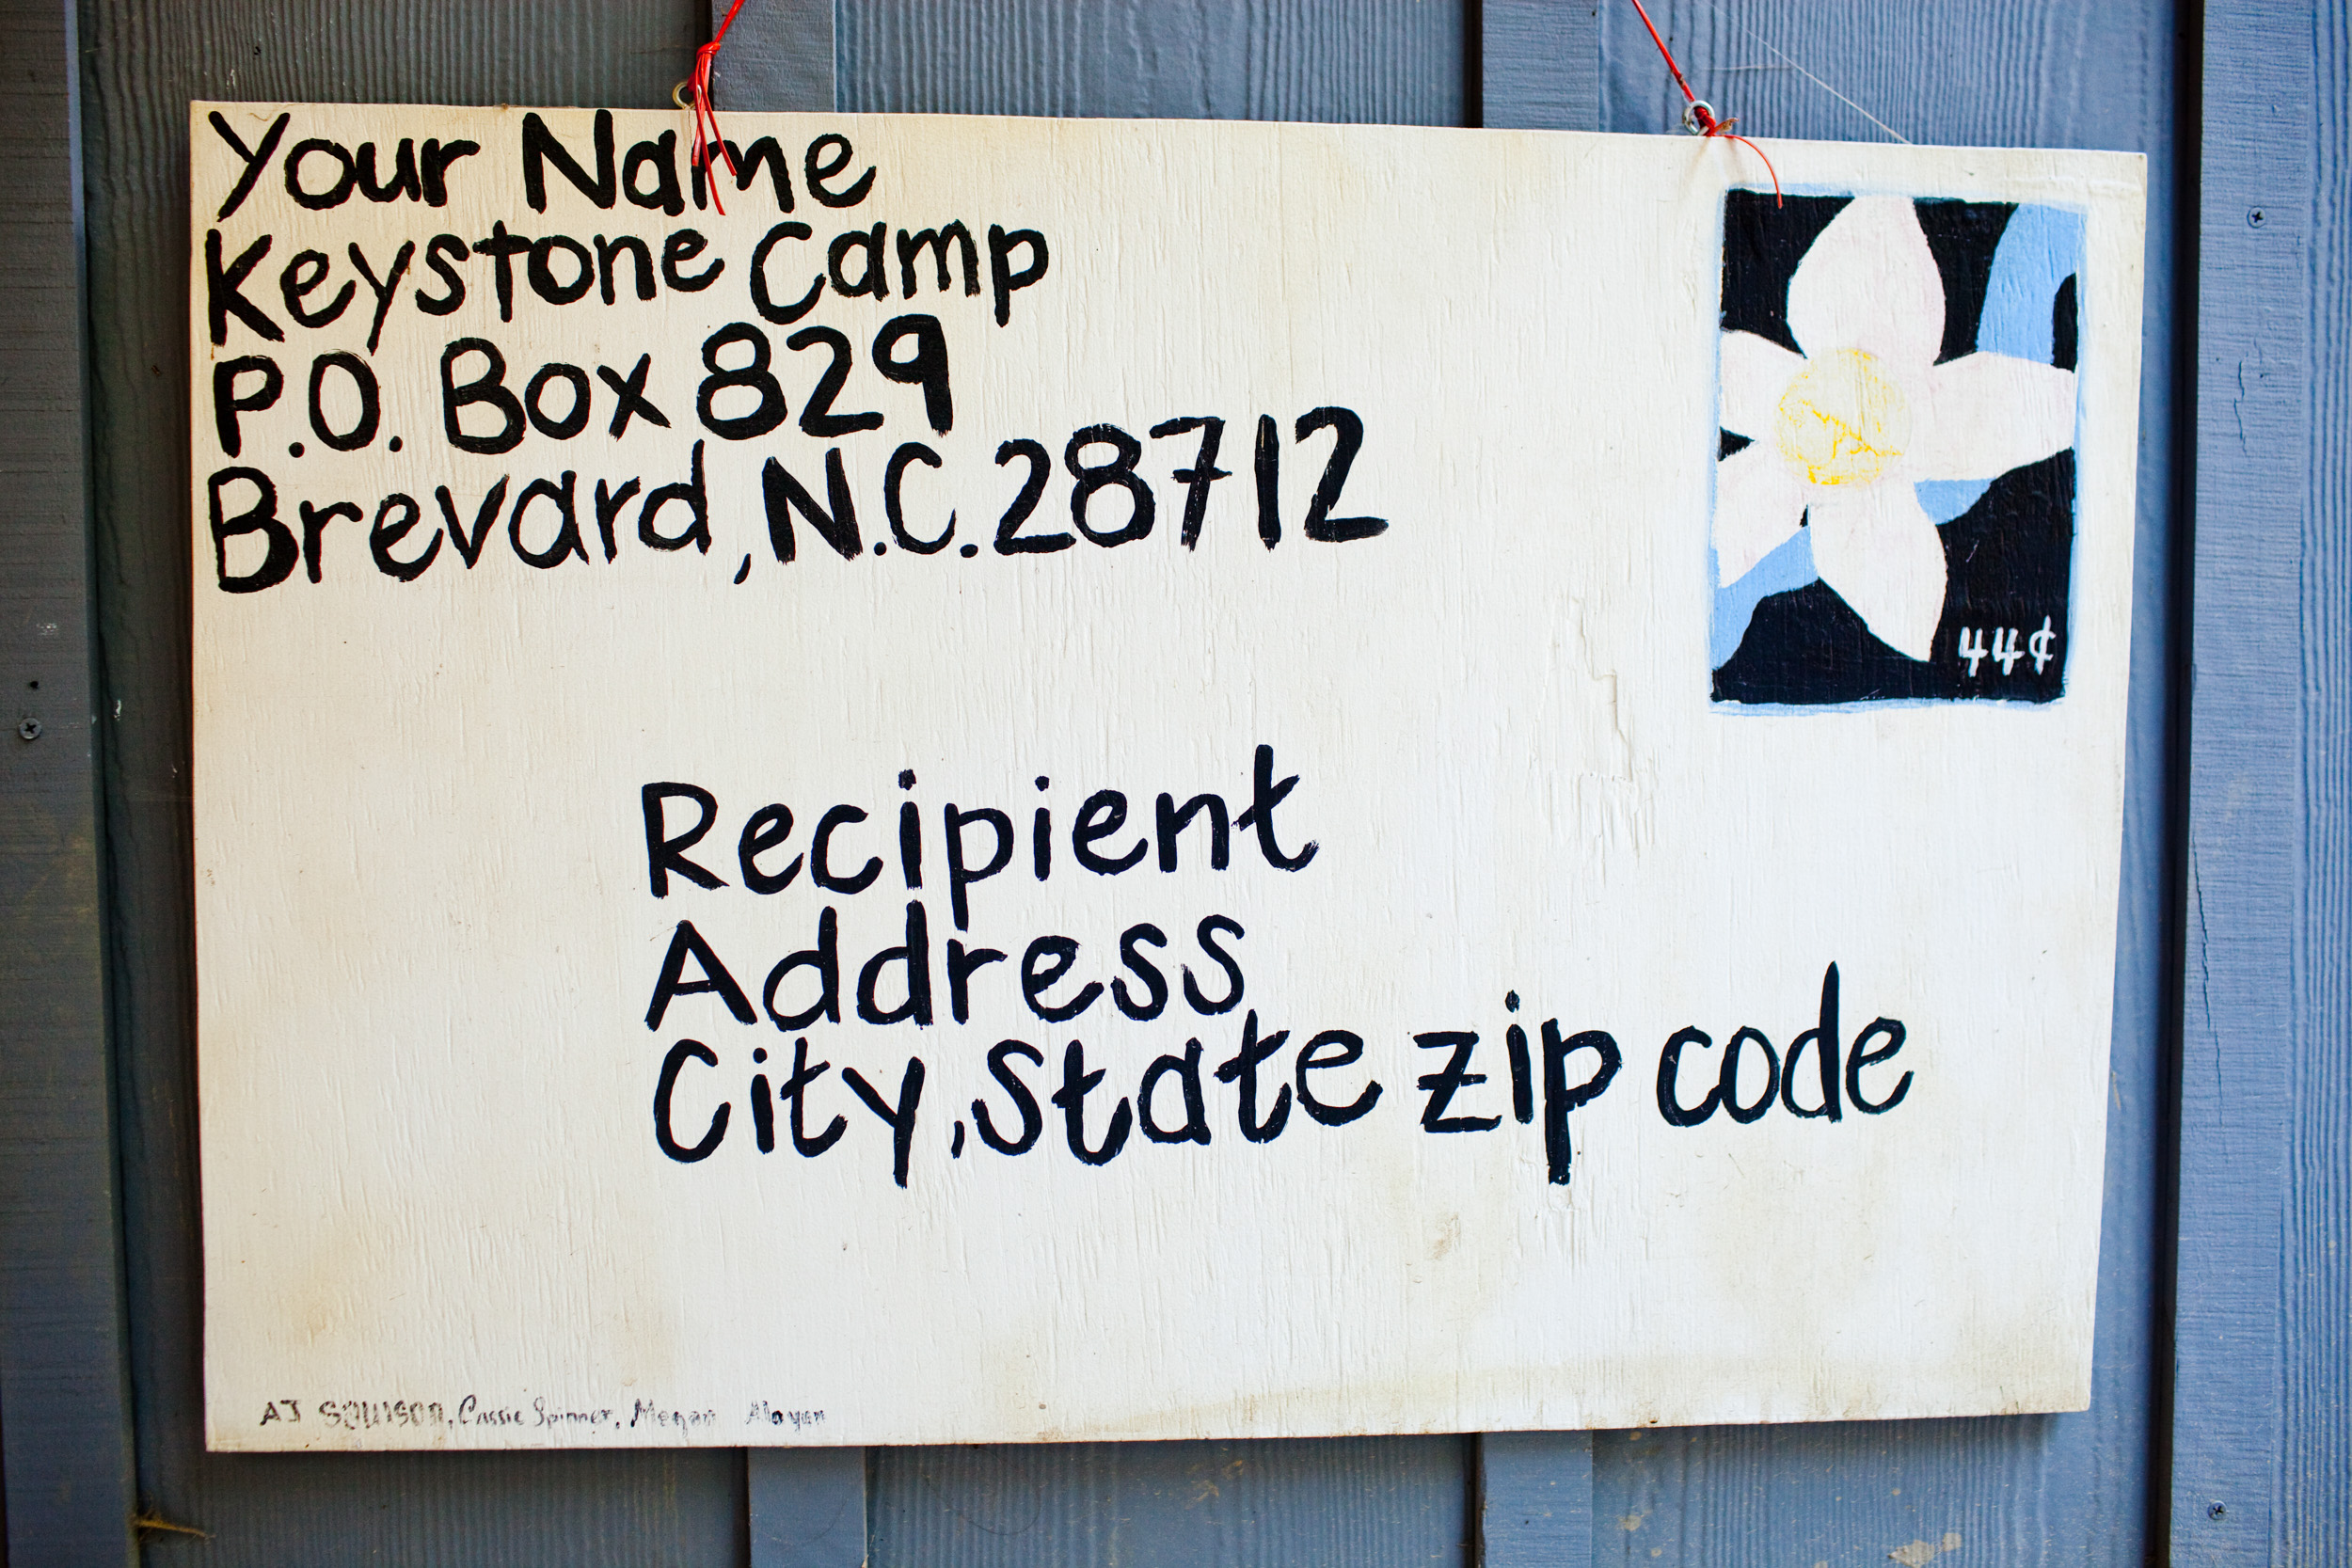 Your Name
Keystone Camp
P.O. Box 829
Brevard, N.C. 28712
44¢
Recipient
Address
City, State zip code
AJ Cassie Spinner, Megan